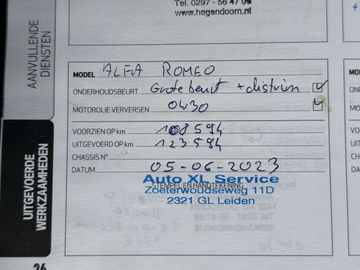 Tel. 0297 - 56 47 06
www.hogendoorn.nl
AANVULLENDE
DIENSTEN
MODEL ALFA ROMEO
ONDERHOUDSBEURT Grote beurt + distrim
MOTOROLIE VERVERSEN 0W30
VOORZIEN OP km 108594
UITGEVOERD OP km 123594
CHASSIS N°
DATUM 05-06-2023
Auto XL Service
STEMPEL EN HANDTEKENING
Zoeterwoudseweg 11D
2321 GL Leiden
UITGEVOERDE
WERKZAAMHEDEN
26